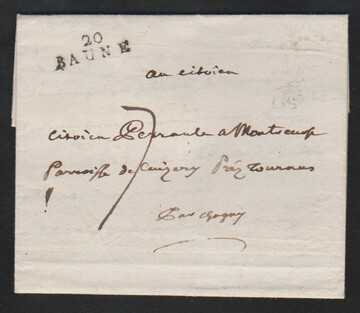 20
BAUNE
au citoien
citoien Perrault a Montceuop
Parroisse de Cuizery Préz Tournus
7
Par Chagny